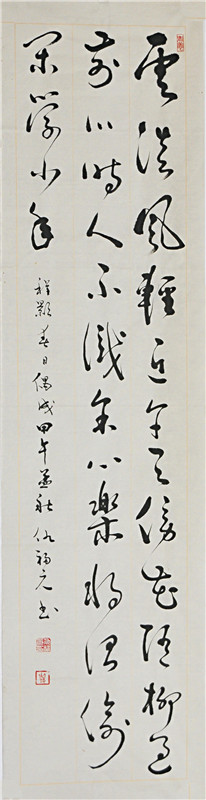 雲淡風輕近午天傍花隨柳過
前川時人不識余心樂將謂偷
閑學少年
程颢春日偶成甲午孟秋仇福元书